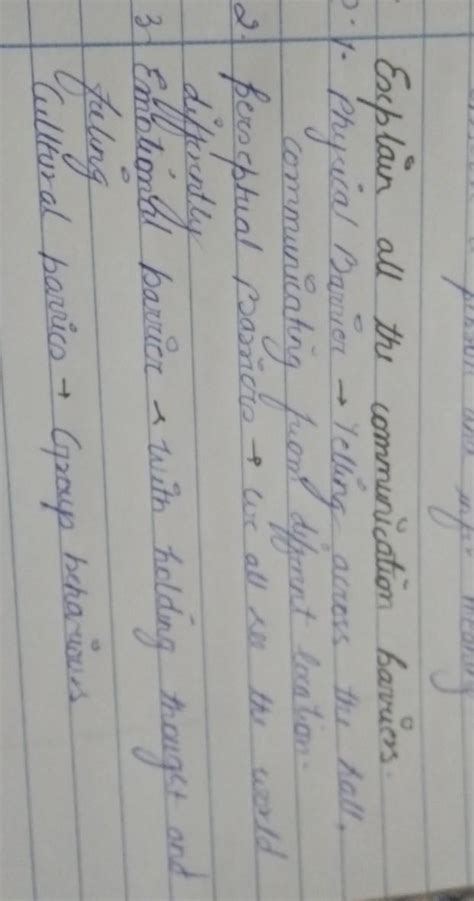 Explain all the communication barriers.
1. Physical Barrier → Yelling across the hall,
communicating from different location.
2. perceptual Barriers → we all see the world
differently
3. Emotional barrier → with holding thought and
feling
Cultural barries → Group behaviours